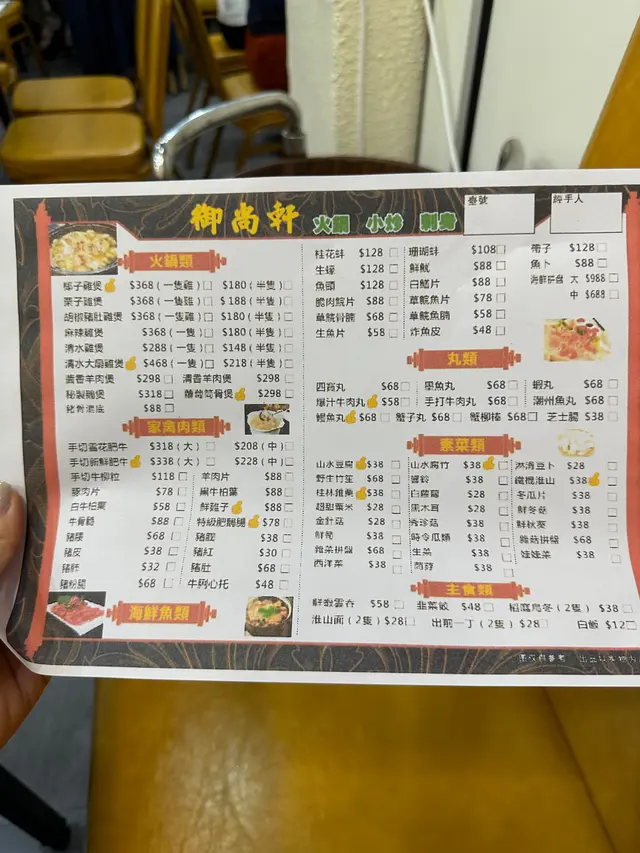 御尚軒 火鍋 小炒 刺身
臺號
經手人
火鍋類
椰子雞煲 $368 (一隻雞) $180 (半隻)
栗子雞煲 $368 (一隻) $188 (半隻)
胡椒豬肚雞煲 $368 (一隻雞) $180 (半隻)
麻辣雞煲 $368 (一隻) $180 (半隻)
清水雞煲 $288 (一隻) $148 (半隻)
清水大扇雞煲 $468 (一隻) $218 (半隻)
茴香羊肉煲 $298 清香羊肉煲 $298
秘製鴨煲 $318 蘿蔔筒骨煲 $298
豬骨湯底 $88
家禽肉類
手切雪花肥牛 $318 (大) $208 (中)
手切新鮮肥牛 $338 (大) $228 (中)
手切牛柳粒 $118 羊肉片 $88
豚肉片 $78 黑牛柏葉 $88
白牛柏葉 $58 鮮雞子 $88
牛骨髓 $88 特級肥鵝腸 $78
豬腰 $68 豬膶 $38
豬皮 $38 豬紅 $30
豬肺 $32 豬肚 $68
豬粉腸 $68 牛脷心托 $48
海鮮魚類
桂花蚌 $128 珊瑚蚌 $108 帶子 $128
生蠔 $128 鮮魷 $88 魚卜 $88
魚頭 $128 白鱔片 $88 海鮮拼盤 大 $988
脆肉鯇片 $88 草鯇魚片 $78 中 $688
草鯇骨腩 $68 草鯇魚腩 $58
生魚片 $58 炸魚皮 $48
丸類
四寶丸 $68 墨魚丸 $68 蝦丸 $68
爆汁牛肉丸 $58 手打牛肉丸 $68 潮州魚丸 $68
鰻魚丸 $68 蟹子丸 $68 蟹柳棒 $68 芝士腸 $38
素菜類
山水豆腐 $38 山水腐竹 $38 淋清豆卜 $28
野生竹笙 $68 響鈴 $38 鐵棍淮山 $38
桂林雜菌 $38 白蘿蔔 $28 冬瓜片 $38
超甜粟米 $28 黑木耳 $28 鮮冬菇 $38
金針菇 $28 秀珍菇 $38 鮮秋葵 $38
鮮筍 $38 時令瓜類 $38 雜菇拼盤 $68
雜菜拼盤 $68 生菜 $38 娃娃菜 $38
西洋菜 $38 茼蒿 $38
主食類
鮮蝦雲吞 $58 韭菜餃 $48 稻庭烏冬 (2隻) $38
淮山面 (2隻) $28 出前一丁 (2隻) $28 白飯 $12